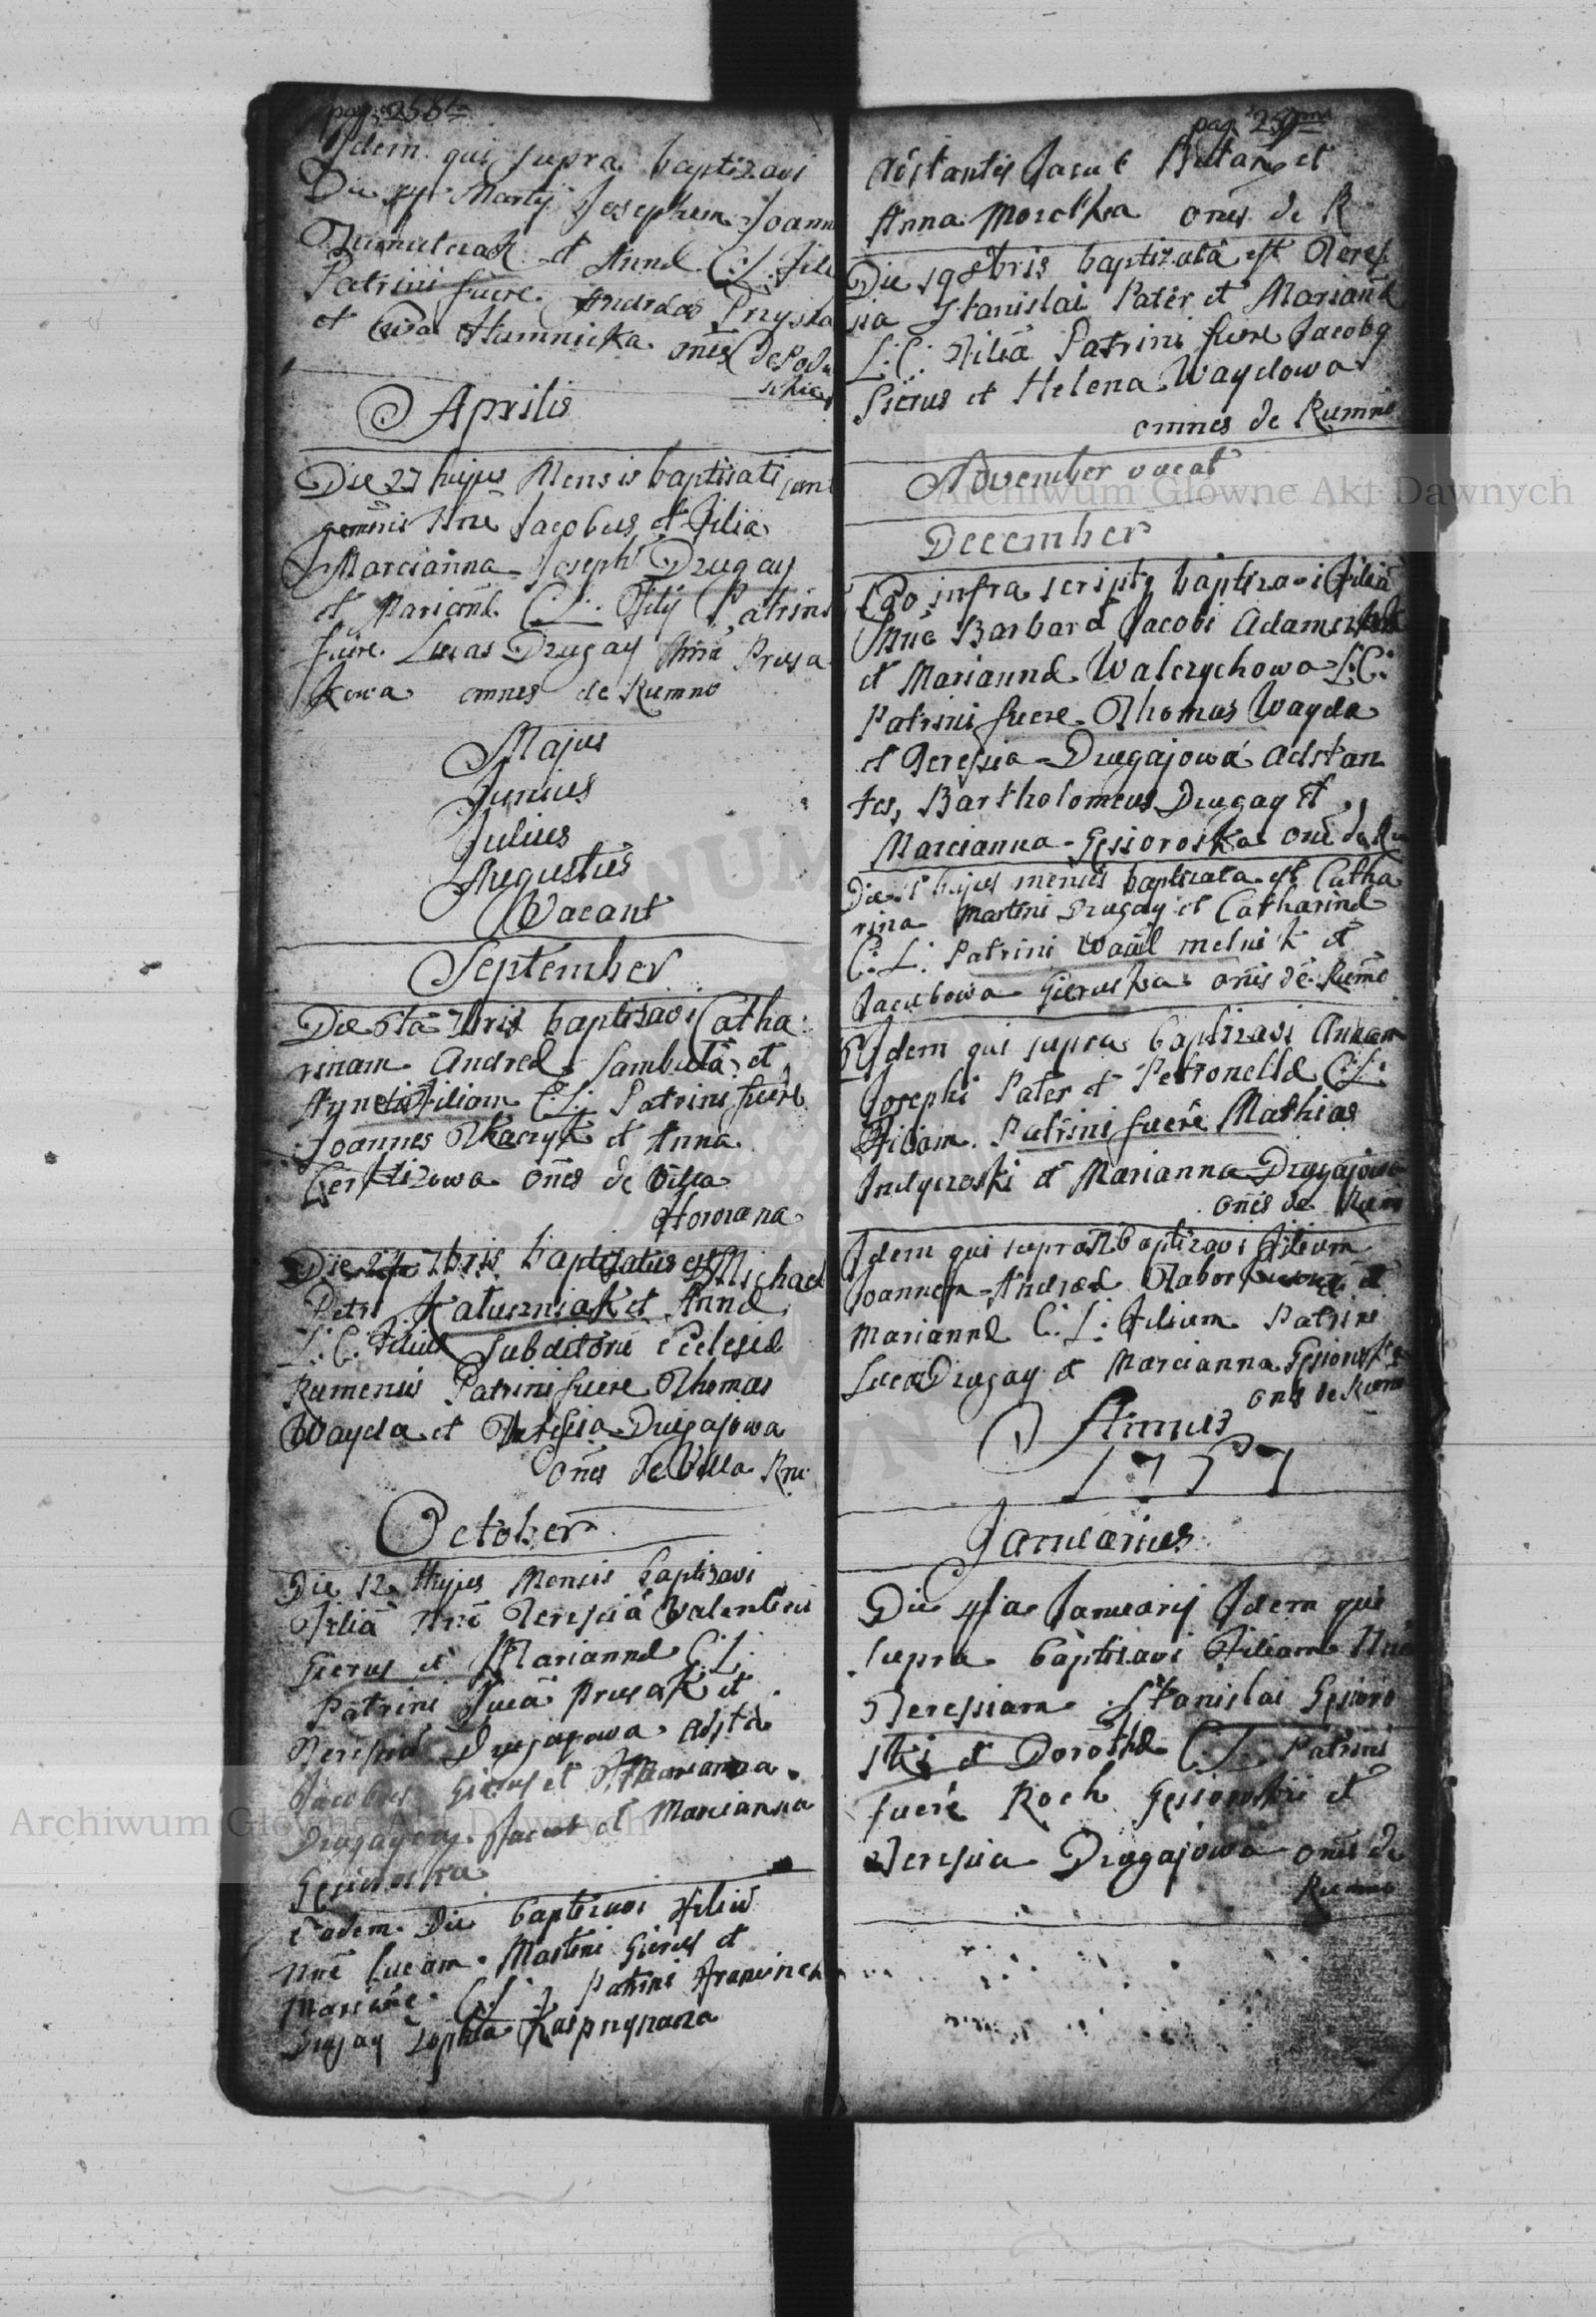 pag. 258
Idem qui supra baptizavi
Die Martij Josephum Joann
et Annæ C: L: Fili
Patrini fuere Andreas
et Ewa Humnicka oñes de
Aprilis
Die 27 hujus Mensis baptisati sunt
gemini nñe Jacobus et Filia
Marcianna Joseph Drugay
et Mariañæ C: L: Filij Patrini
fuere Lucas Drugay Anna Prusa
kowa omnes de Rumno
Majus
Junius
Julius
Augustus
Vacant
September
Die 6ta 7bris baptisavi Catha
rinam Andreæ Sambuta et
Agnetis Filiam C: L: Patrini fuere
Joannes Tkaczyk et Anna
oñes de Villa
Horozana
Die 24 7bris baptisatus est Michael
Petri Katuszniak et Annæ
L: C: Filius Subditorũ Ecclesiæ
Rumensis Patrini fuere Thomas
Wayda et Theresia Drugajowa
oñes de Villa Rm
October
Die 12 Hujus Mensis baptisavi
Filiã nñe Teresiã Valentini
Gierus et Mariannæ C: L:
Patrini Lucã Prusak et
Teresiæ Drugajowa Adstã
Jacobus Gierus et Marianna
Drugajowa Jacub et Marcianna
Gęsiorska
Eadem Die baptizavi Filiũ
nñe Lucam Martini Gierus et
C: L: Patrini Francisch
Drugay Sophia
pag 259ma
Adstantes Jacub Butar et
Anna Morotka oñes de R
Die 19 8bris baptizata est Teres
sia Stanislai Pater et Mariañæ
L: C: Filiã Patrini fuere Jacobg
Gierus et Helena Waydowa
omnes de Rumno
November vacat
December
Ego infra scriptg baptizavi Filiã
nñe Barbarã Jacobi
et Mariannæ Walczychowa L: C:
Patrini fuere Thomas Wayda
et Teresia Drugajowa Adstan
tes, Bartholomeus Drugay et
Marcianna Gęsioroska oñe de Ru
Die hujus mensis baptizata est Catha
rina Martini Drugay et Catharinæ
C: L: Patrini Wasil melnik et
Jacubowa Gieruska oñes de Rumno
Idem qui supra baptizavi Annam
Josephi Pater et Petronellæ C: L:
Filiam Patrini fuere Mathias
et Marianna Drugajowa
oñes de Rum
Idem qui supra baptizavi Filium
Joannem Andreæ et
Mariannæ C: L: Filium Patrini
Luca Drugay et Marcianna Gęsiorska
oñes de Rumno
Annus
1757
Januarius
Die 4ta Januarij Idem qui
supra baptisavi Filiam Nñe
Teresiam Stanislai Gęsioro
ski et Dorothæ C: L: Patrini
fuere Roch Gęsiorowski et
Teresia Drugajowa oñes de
Rumno
Archiwum Główne Akt Dawnych
Archiwum Główne Akt Dawnych